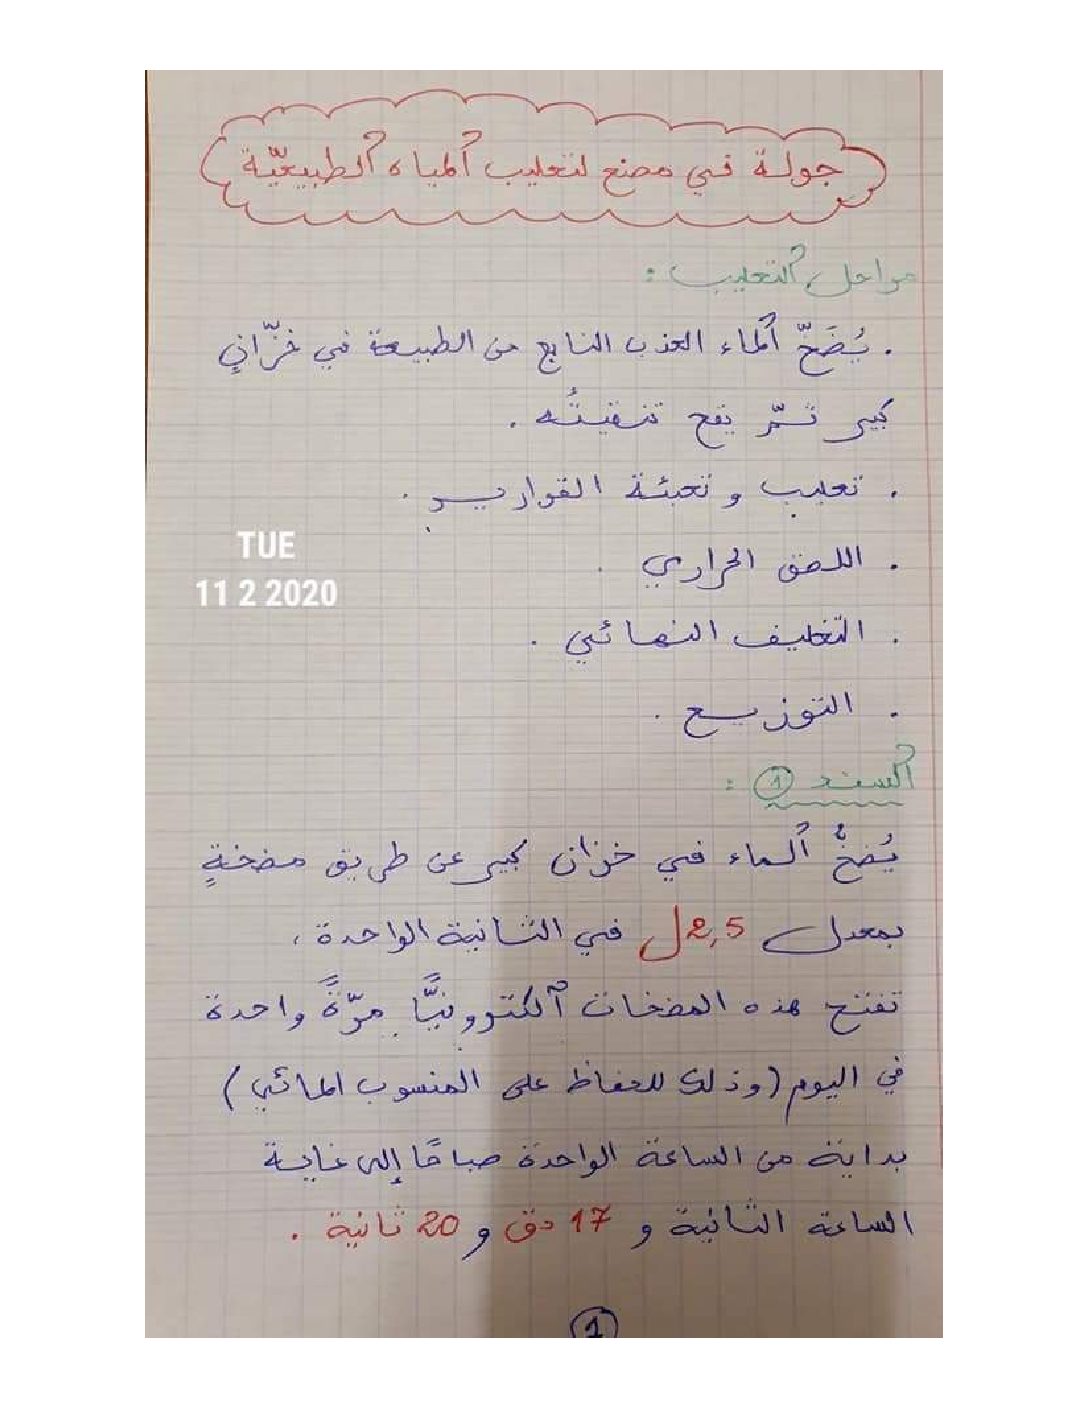 جولة في مصنع لتعليب ٱلمياه ٱلطبيعيّة
مراحل ٱلتعليب :
. يُضَخّ ٱلماء العذب النابع من الطبيعة في خزّانٍ
كبير ثمّ يقع تنقيتُه .
. تعليب و تعبئة القوارير .
TUE
. اللصق الحراري .
11 2 2020
. التغليف النهائي .
. التوزيع .
ٱلسند 1 :
يُضخُّ ٱلماء في خزان كبير عن طريق مضخةٍ
بمعدل 2,5 ل في الثانية الواحدة ،
تفتح هذه المضخات ٱلكترونيًّا مرّةً واحدة
في اليوم (وذلك للحفاظ على المنسوب المائي)
بداية من الساعة الواحدة صباحًا إلى غاية
الساعة الثانية و 17 دق و 20 ثانية .
1